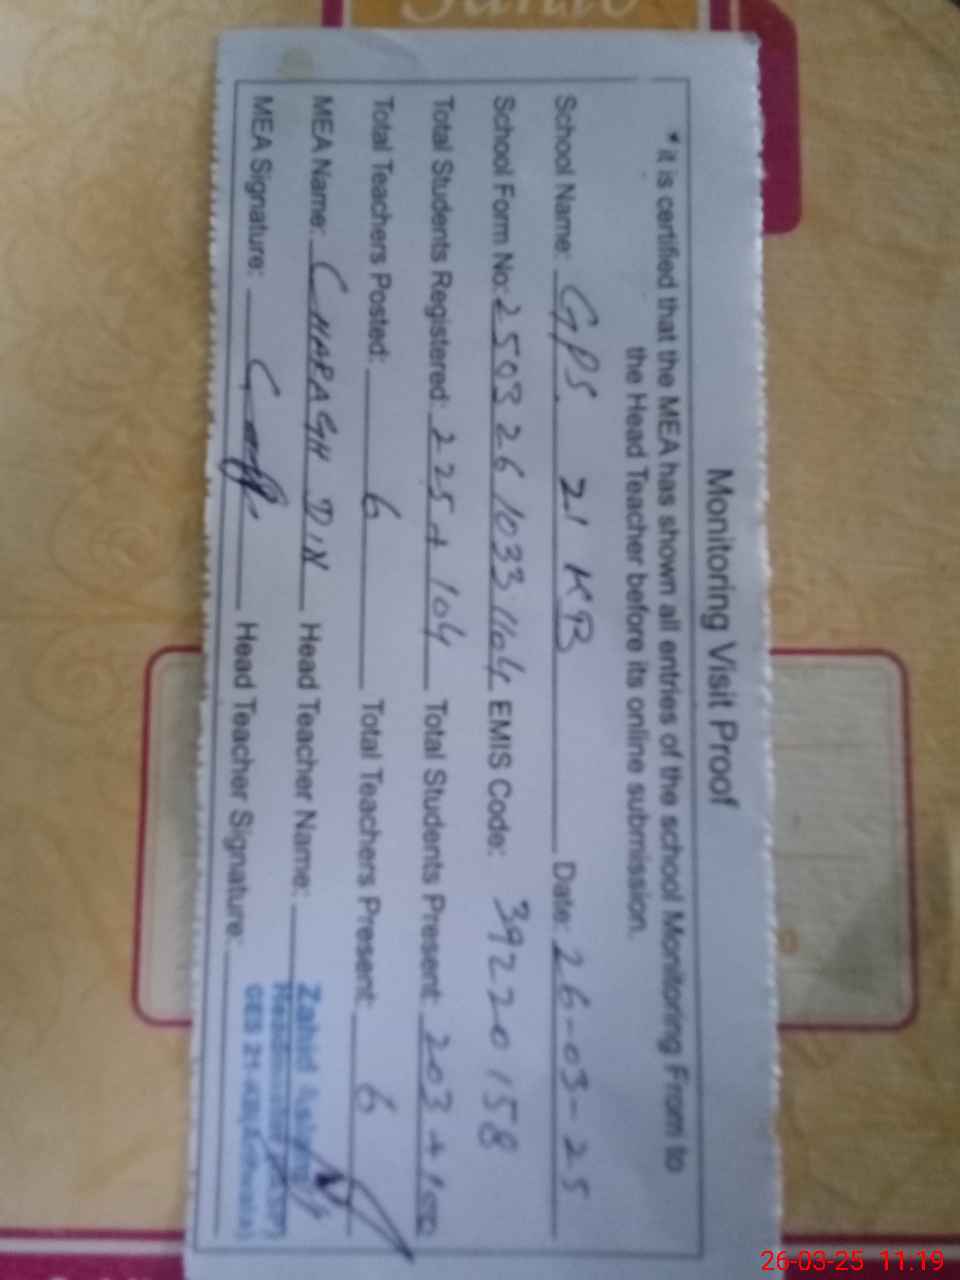 Monitoring Visit Proof
*it is certified that the MEA has shown all entries of the school Monitoring From to
the Head Teacher before its online submission.
School Name: GPS 21 KB Date: 26-03-25
School Form No: 25032610331164 EMIS Code: 39220158
Total Students Registered: 225+104 Total Students Present: 203+100
Total Teachers Posted: 6 Total Teachers Present: 6
MEA Name: CHARAGH DIN Head Teacher Name: Zahid
MEA Signature: Head Teacher Signature:
Headmaster
GES 21-KB(Arifwala)
26-03-25 11.19